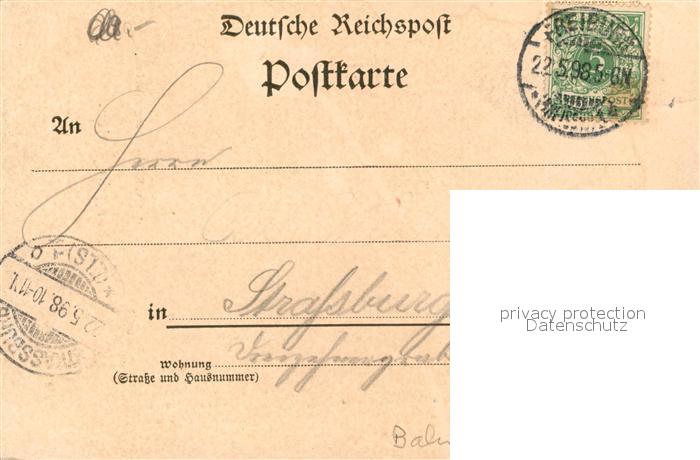 Deutsche Reichspost
Postkarte
FREIBURG
22.5.98.5-6N.
An
Herrn
STRASSBURG
22.5.98.10-11V.
in Straßburg
Wohnung
(Straße und Hausnummer)
privacy protection
Datenschutz